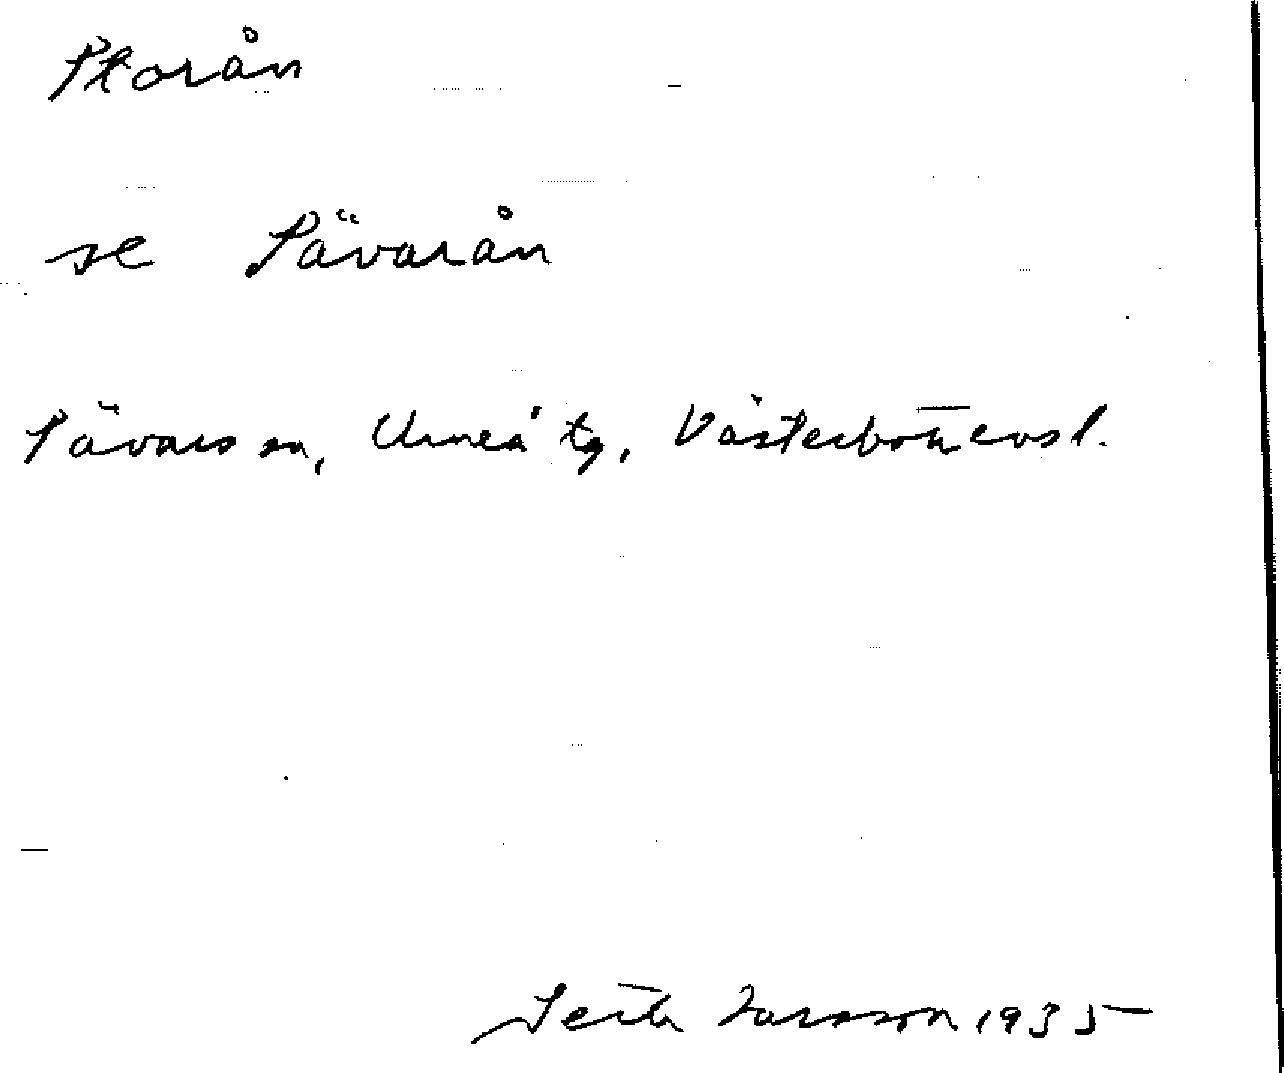 Storån
se Sävarån
Sävars sn, Umeå tg, Västerbottens l.
Seth Larsson 1935